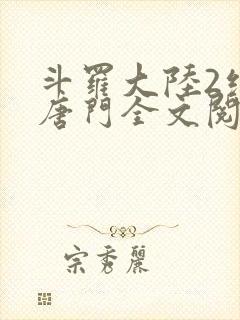 斗羅大陸2絕
唐門全文閱
宗秀麗